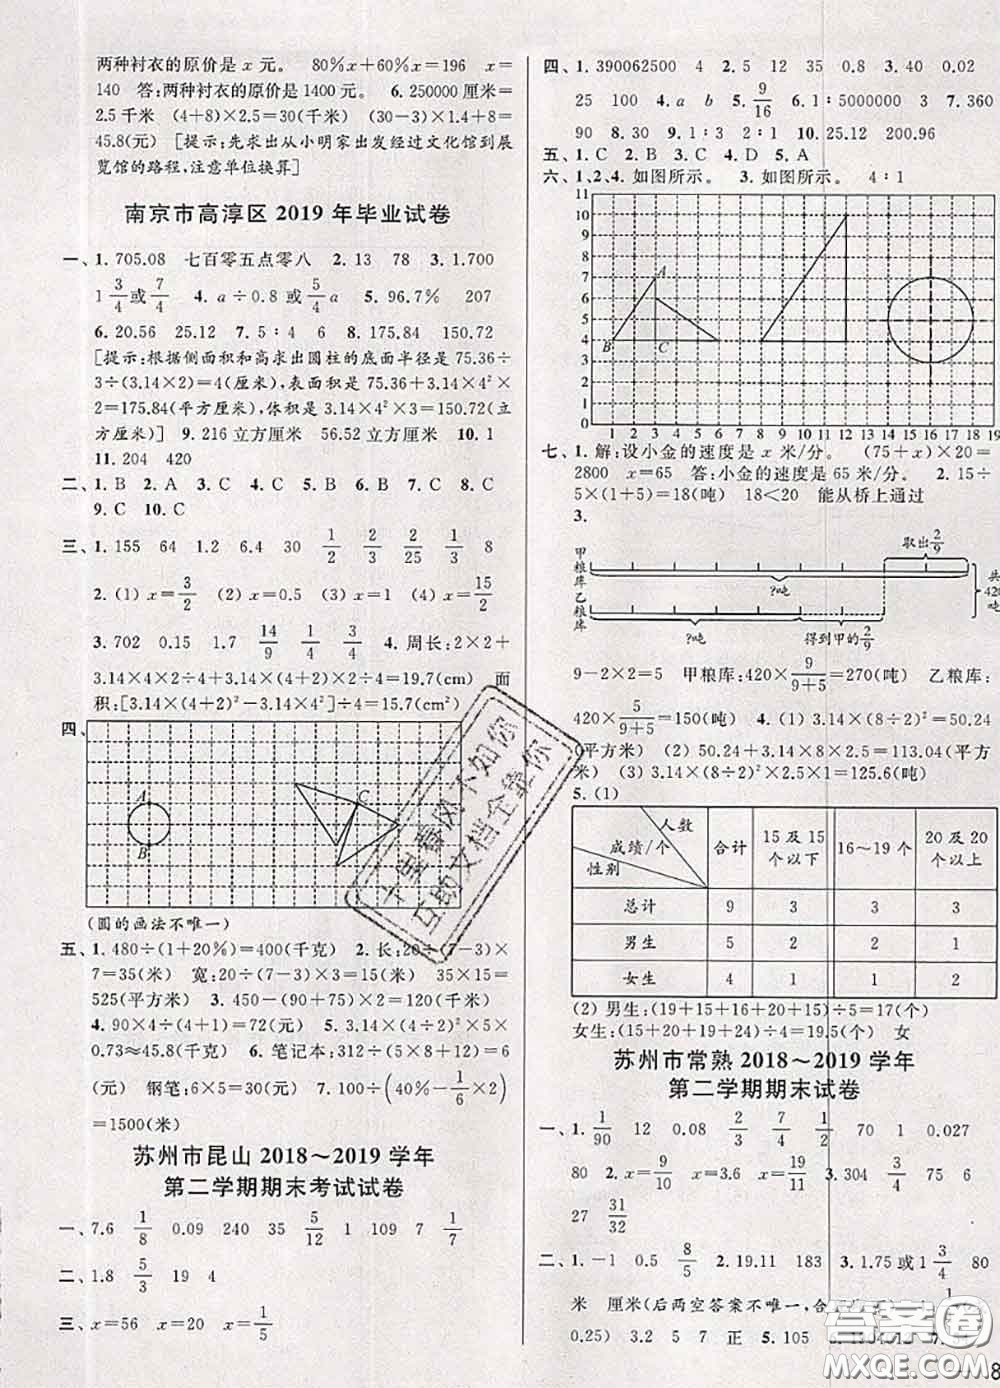 两种衬衣的原价是 x 元。 80%x+60%x=196 x=
140 答:两种衬衣的原价是 1400 元。 6. 250000 厘米=
2.5 千米 (4+8)×2.5=30(千米) (30-3)×1.4+8=
45.8(元) [提示:先求出从小明家出发经过文化馆到展
览馆的路程,注意单位换算]
南京市高淳区 2019 年毕业试卷
一、1. 705.08 七百零五点零八 2. 13 78 3. 1.700
1 3/4 或 7/4 4. a÷0.8 或 5/4 a 5. 96.7% 207
6. 20.56 25.12 7. 5∶4 6 8. 175.84 150.72
[提示:根据侧面积和高求出圆柱的底面半径是 75.36÷
3÷(3.14×2)=4(厘米),表面积是 75.36+3.14×4²×2
=175.84(平方厘米),体积是 3.14×4²×3=150.72(立
方厘米)] 9. 216 立方厘米 56.52 立方厘米 10. 1
11. 204 420
二、1. B 2. A 3. C 4. C 5. B 6. C 7. C 8. C
9. C 10. C
三、1. 155 64 1.2 6.4 30 1/2 2/3 2/25 1/3 8
2. (1) x=3/2 (2) x=0.5 (3) x=1 (4) x=15/2
3. 702 0.15 1.7 14/9 1/4 3/4 4. 周长:2×2+
3.14×4×2÷4+3.14×(4+2)×2÷4=19.7(cm) 面
积:[3.14×(4+2)²-3.14×4²]÷4=15.7(cm²)
四、
A
B
C
(圆的画法不唯一)
五、1. 480÷(1+20%)=400(千克) 2. 长:20÷(7-3)×
7=35(米) 宽:20÷(7-3)×3=15(米) 35×15=
525(平方米) 3. 450-(90+75)×2=120(千米)
4. 90×4÷(4+1)=72(元) 5. 3.14×(4÷2)²×5×
0.73≈45.8(千克) 6. 笔记本:312÷(7×6+5×2)=6
(元) 钢笔:6×5=30(元) 7. 220÷(40%-1/6×1/2)
=1500(米)
苏州市昆山 2018～2019 学年
第二学期期末考试试卷
一、7.6 1/8 0.09 240 35 5/12 1 109 7 1/7
二、1.8 5/3 19 4
三、x=56 x=20 x=1/5
四、1. 390062500 4 2. 5 12 35 0.8 3. 40 0.02
25 100 4. a b 5. 9/16 6. 1∶5000000 3 7. 360
90 8. 30 9. 1∶3 2∶1 10. 25.12 200.96
五、1. C 2. B 3. C 4. D 5. A
六、1、2、4. 如图所示。 3. 如图所示。 4∶1
11
10
9
8
7
6
5
4
3
2
1
0
A
B
C
1 2 3 4 5 6 7 8 9 10 11 12 13 14 15 16 17 18 19
七、1. 解:设小金的速度是 x 米/分。 (75+x)×20=
2800 x=65 答:小金的速度是 65 米/分。 2. 15÷
5×(1+5)=18(吨) 18<20 能从桥上通过
3.
取出2/9
甲粮库
?吨
乙粮库
?吨
得到甲的2/9
共420吨
9-2-2=5 甲粮库:420×9/(9+5)=270(吨) 乙粮库:
420×5/(9+5)=150(吨) 4. (1) 3.14×(8÷2)²=50.24
(平方米) (2) 50.24+3.14×8×2.5=113.04(平方
米) (3) 3.14×(8÷2)²×2.5=125.6(吨)
5. (1)
人数
成绩/个
性别
合计 15 及 15 个以下 16～19 个 20 及 20 个以上
总计 9 3 3 3
男生 5 2 2 1
女生 4 1 1 2
(2) 男生:(19+15+16+20+15)÷5=17(个)
女生:(15+20+19+24)÷4=19.5(个) 女
苏州市常熟 2018～2019 学年
第二学期期末试卷
一、1. 1/90 12 0.08 2/3 4/7 1/2 70 1 0.027
80 2. x=9/10 x=3.6 x=2/3 3. 304 3/4 6
27 31/32
二、1. -1 0.5 8/5 2. 19.11 183 3. 1.75 或1 3/4 80
米 厘米(后两空答案不唯一,合
0.25) 3. 2 5 7 正 5. 105
8
十里春风不如你
互助文档全靠你
答案圈
MXQE.COM